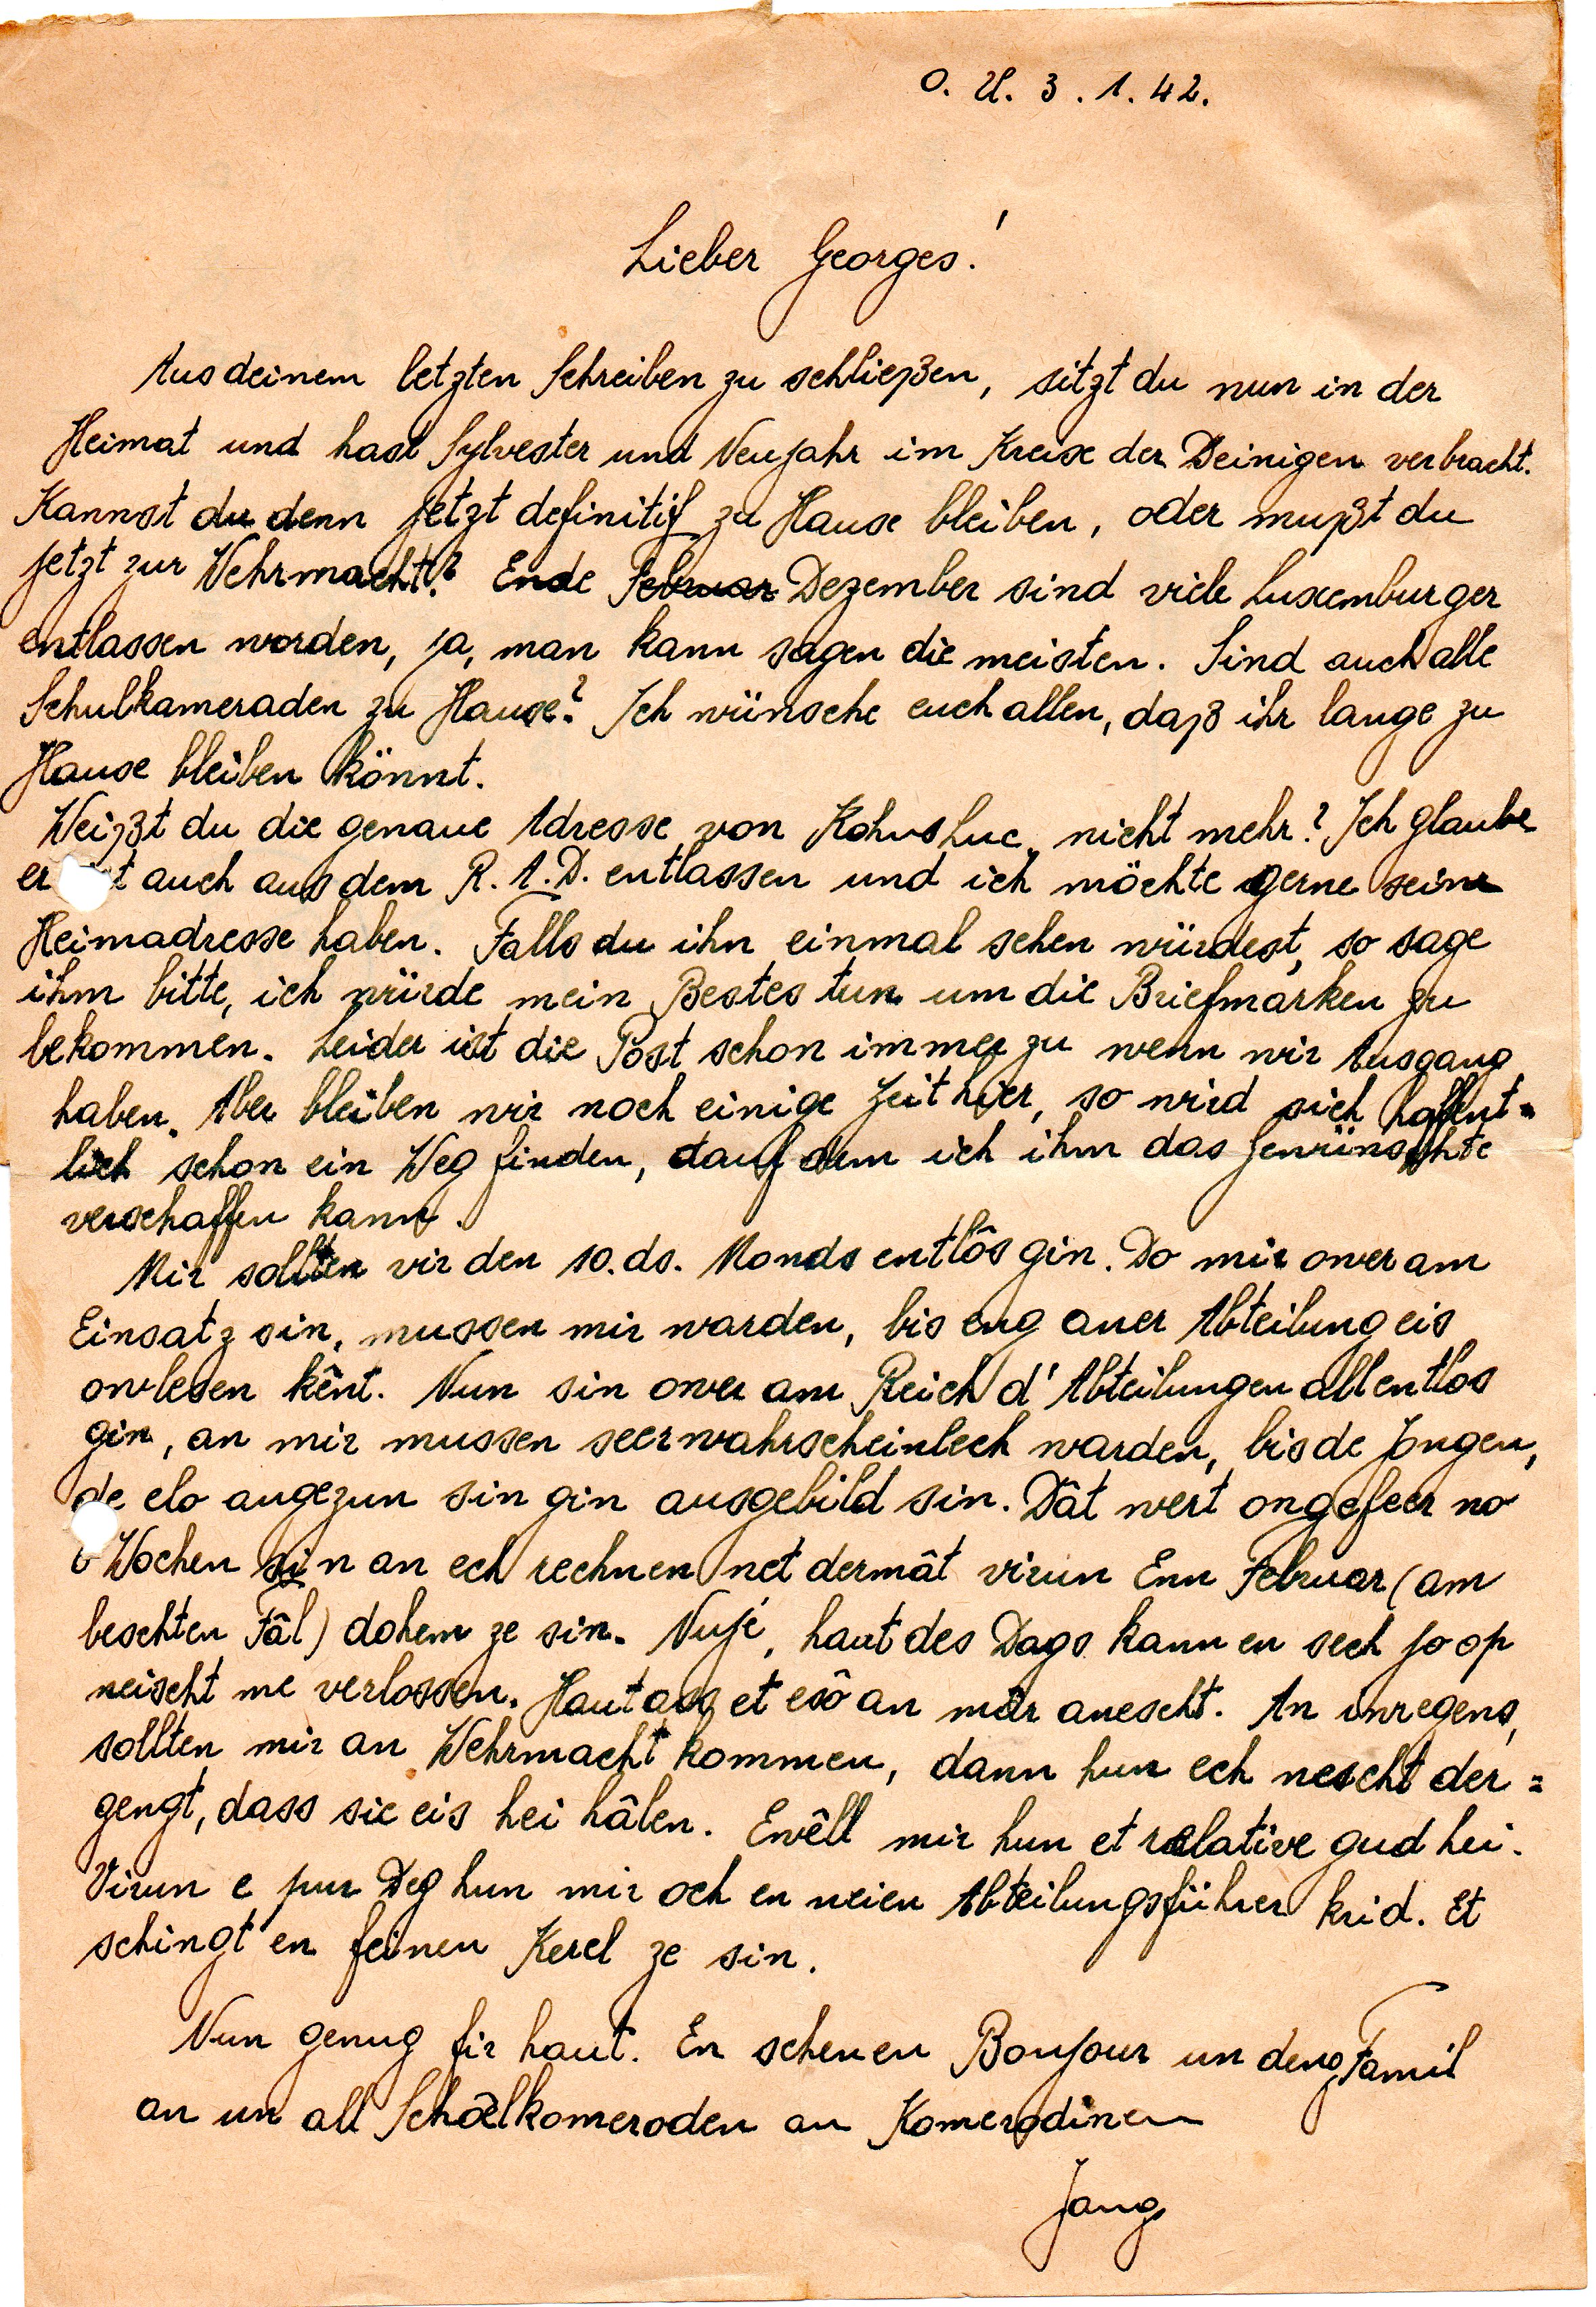 O. U. 3. 1. 42.
Lieber Georges!
Aus deinem letzten Schreiben zu schließen, sitzt du nun in der
Heimat und hast Sylvester und Neujahr im Kreise der Deinigen verbracht.
Kannst du denn jetzt definitif zu Hause bleiben, oder mußt du
jetzt zur Wehrmacht? Ende Februar Dezember sind viele Luxemburger
entlassen worden, ja, man kann sagen die meisten. Sind auch alle
Schulkameraden zu Hause? Ich wünsche euch allen, daß ihr lange zu
Hause bleiben könnt.
Weißt du die genaue Adresse von Kohns Luc nicht mehr? Ich glaube
er auch aus dem R. A. D. entlassen und ich möchte gerne seine
Heimadresse haben. Falls du ihn einmal sehen würdest, so sage
ihm bitte, ich würde mein Bestes tun um die Briefmarken zu
bekommen. Leider ist die Post schon immer zu wenn wir Ausgang
haben. Aber bleiben wir noch einige Zeit hier, so wird sich hoffent=
lich schon ein Weg finden, auf dem ich ihm das Gewünschte
verschaffen kann.
Mir sollten vir den 10. ds. Monds entlôs gin. Do mir ower am
Einsatz sin, mussen mir warden, bis eng aner Abteilung eis
owlesen kênt. Nun sin ower am Reich d'Abteilungen all entlos
gin, an mir mussen seer wahrscheinlech warden, bis de Jongen,
de elo angezun sin gin ausgebild sin. Dât wert ongefeer no
Wochen sin an ech rechnen net dermât virun Enn Februar (am
beschten Fâl) dohem ze sin. Nujé, haut des Dags kann en sech jo op
neischt me verlossen. Haut ass et esô an mar anescht. An iwregens,
sollten mir an Wehrmacht kommen, dann hun ech nescht der=
gengt, dass sie eis hei hâlen. Ewêll mir hun et relative gud hei.
Virun e puer Deg hun mir och en neien Abteilungsführer krid. Et
schingt en feinen Kerel ze sin.
Nun genug fir haut. En schenen Bonjour un deng Famil
an un all Schoelkomeroden an Komerodinen
Jang